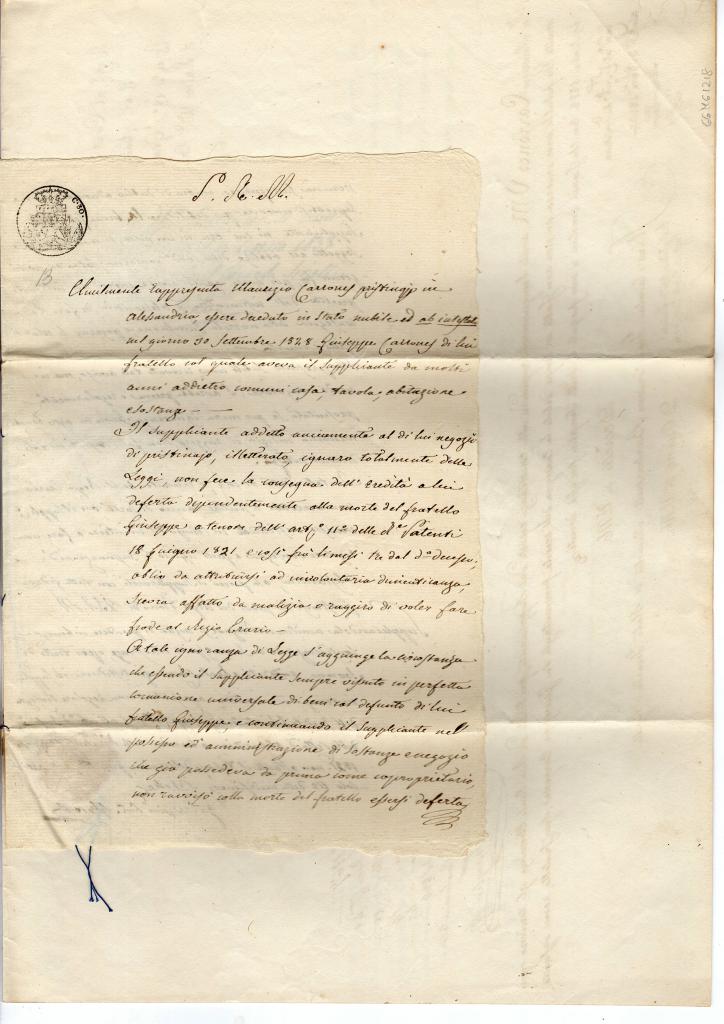 S. R. M.
C. 80.
13
Umilmente Rappresenta Maurizio Carrones pristinajo in
Alessandria, essere deceduto in Stato nubile ed ab intestato
nel giorno 30 Settembre 1828 Giuseppe Carrones di lui
fratello col quale aveva il Supplicante da molti
anni addietro comuni casa, tavola, abitazione
e sostanze —
Il Supplicante addetto unicamente al di lui negozio
di pristinajo, illetterato, ignaro totalmente delle
Leggi, non fece la consegna dell' eredità a lui
deferta dipendentemente alla morte del fratello
Giuseppe a tenore dell' art.º 11º delle d.e Patenti
18 Giugno 1821, e così frà li mesi tre dal d.º decesso,
oblio da attribuirsi ad involontaria dimenticanza,
scevra affatto da malizia o raggiro di voler fare
frode al Regio Erario —
A tale ignoranza di Legge s'aggiunge la circostanza
che essendo il Supplicante sempre vissuto in perfetta
comunione universale di beni col defunto di lui
fratello Giuseppe, e continuando il Supplicante nel
possesso ed amministrazione di Sostanze e negozio
che già possedeva da prima come coproprietario,
non ravvisò colla morte del fratello essersi deferta
66761218